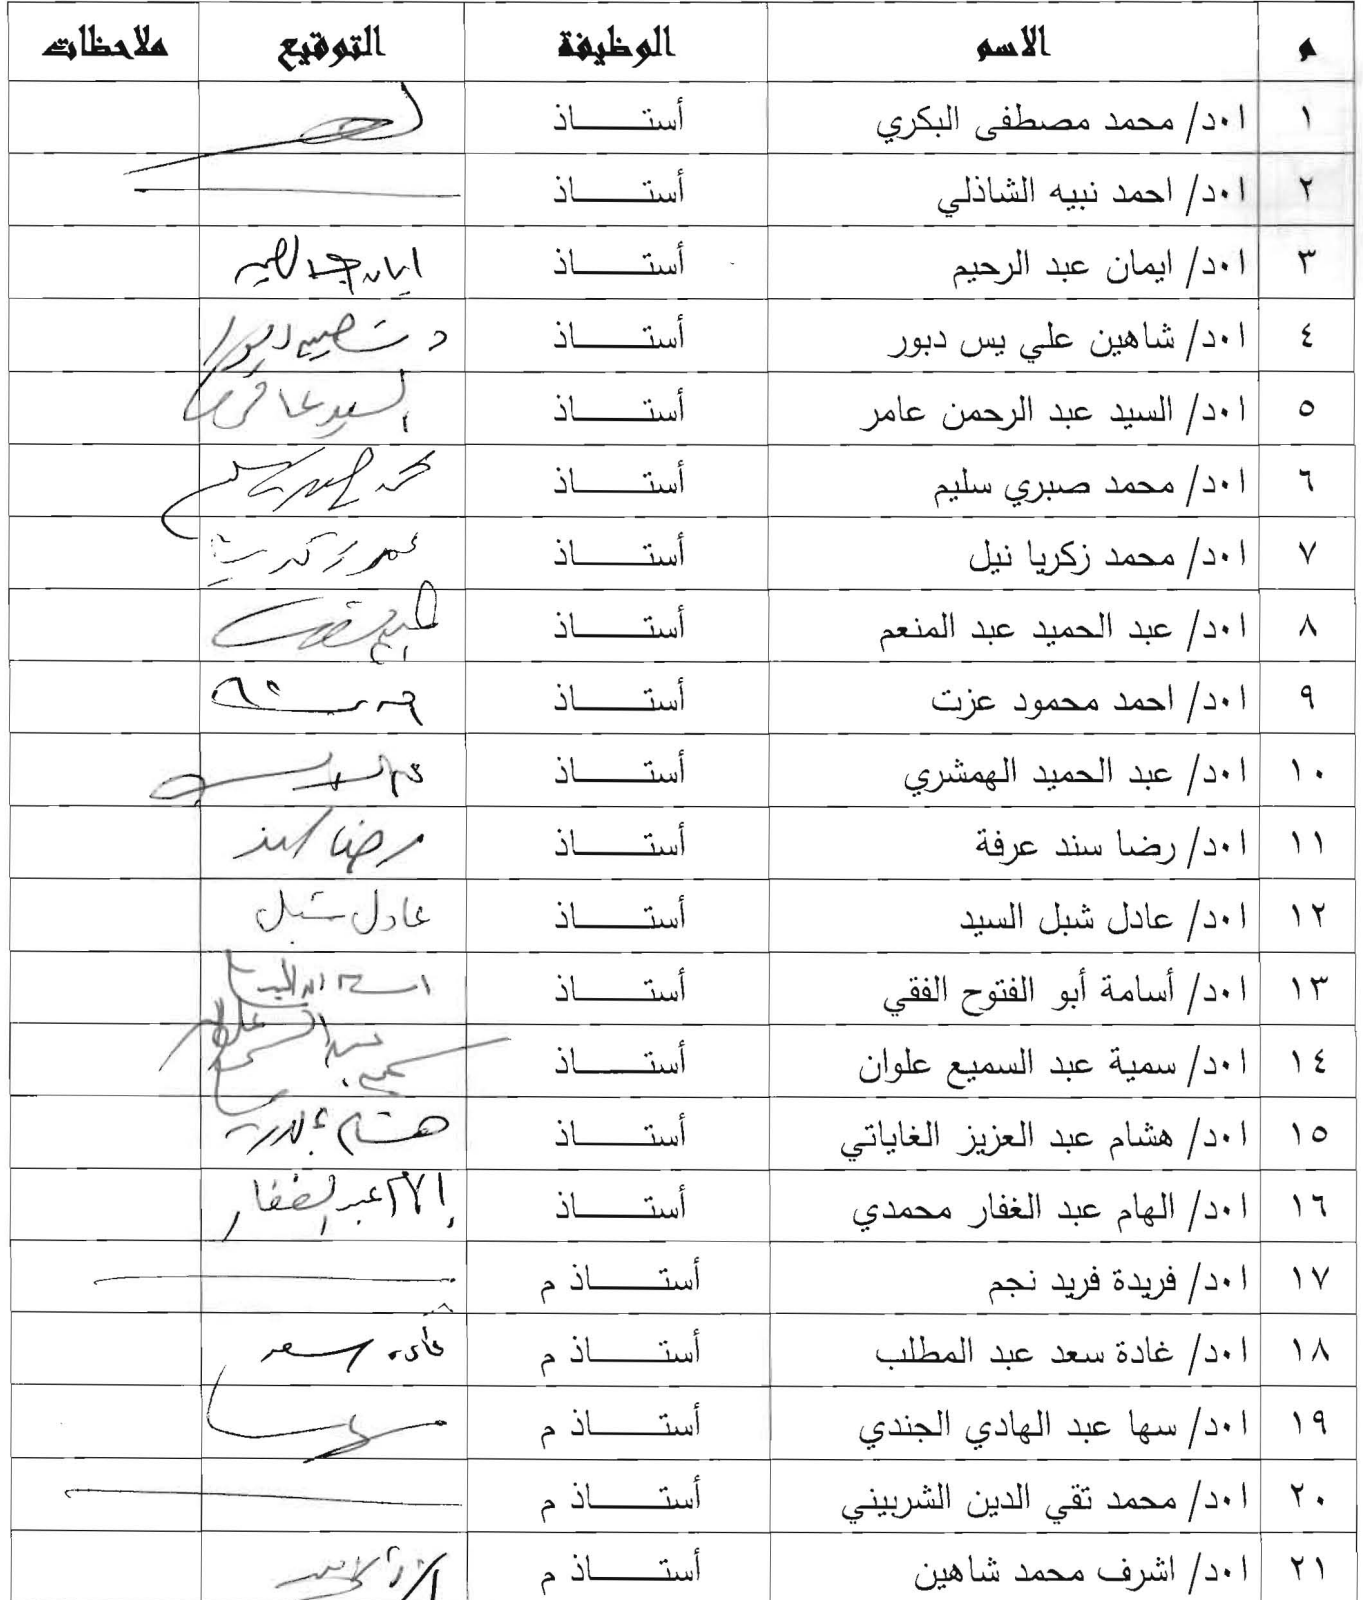 م الاسم الوظيفة التوقيع ملاحظات
١ ا٠د/ محمد مصطفى البكري أستــــاذ
٢ ا٠د/ احمد نبيه الشاذلي أستــــاذ
٣ ا٠د/ ايمان عبد الرحيم أستــــاذ
٤ ا٠د/ شاهين علي يس دبور أستــــاذ
٥ ا٠د/ السيد عبد الرحمن عامر أستــــاذ
٦ ا٠د/ محمد صبري سليم أستــــاذ
٧ ا٠د/ محمد زكريا نيل أستــــاذ
٨ ا٠د/ عبد الحميد عبد المنعم أستــــاذ
٩ ا٠د/ احمد محمود عزت أستــــاذ
١٠ ا٠د/ عبد الحميد الهمشري أستــــاذ
١١ ا٠د/ رضا سند عرفة أستــــاذ رضا سند
١٢ ا٠د/ عادل شبل السيد أستــــاذ عادل شبل
١٣ ا٠د/ أسامة أبو الفتوح الفقي أستــــاذ
١٤ ا٠د/ سمية عبد السميع علوان أستــــاذ
١٥ ا٠د/ هشام عبد العزيز الغاياتي أستــــاذ هشام
١٦ ا٠د/ الهام عبد الغفار محمدي أستــــاذ إلهام عبد الغفار
١٧ ا٠د/ فريدة فريد نجم أستــــاذ م
١٨ ا٠د/ غادة سعد عبد المطلب أستــــاذ م غادة سعد
١٩ ا٠د/ سها عبد الهادي الجندي أستــــاذ م
٢٠ ا٠د/ محمد تقي الدين الشربيني أستــــاذ م
٢١ ا٠د/ اشرف محمد شاهين أستــــاذ م